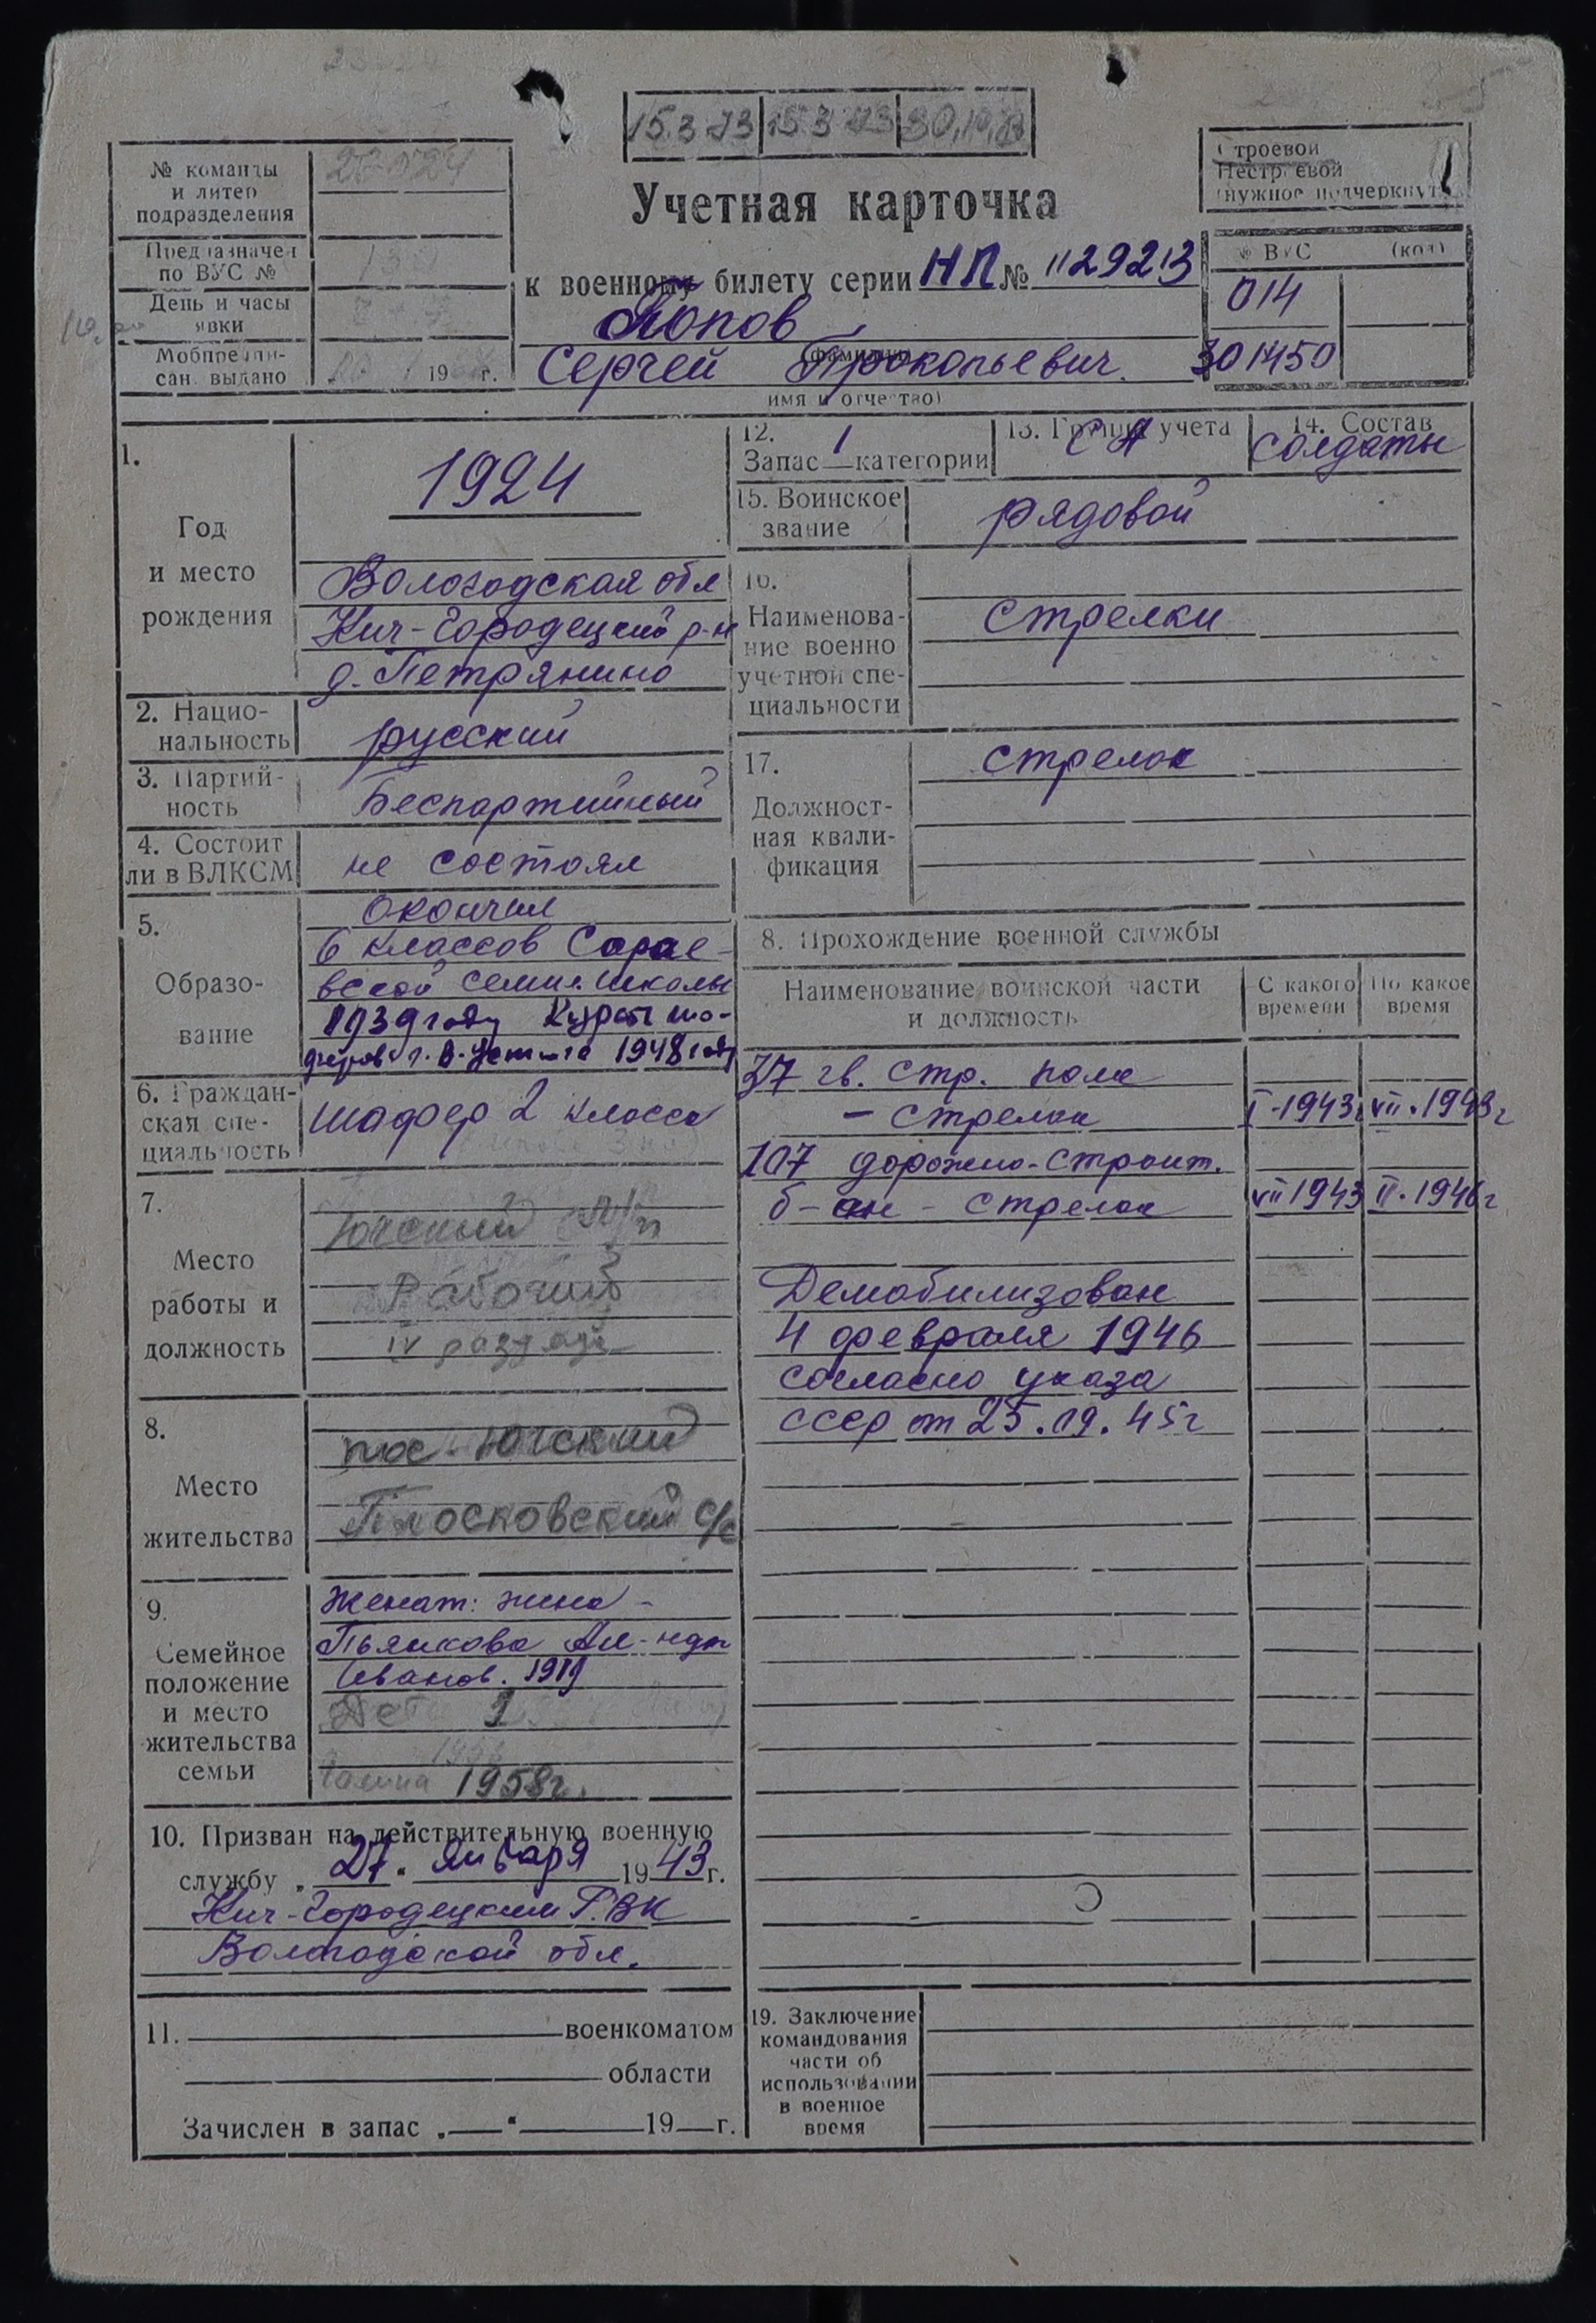 15.3 73 15.3 73 30.10.73
№ команды
и литер
подразделения
Предназначен
по ВУС №
День и часы
явки
Мобпредпи-
сан. выдано
19 г.
Строевой
Нестроевой
(нужное подчеркнуть)
Учетная карточка
к военному билету серии НП № 1129213
Попов
(фамилия)
Сергей Прокопьевич.
имя и отчество)
№ ВУС (код)
014
301450
1.
Год
и место
рождения
1924
Вологодская обл
Кич-Городецкий р-н
д. Петрянино
2. Нацио-
нальность
русский
3. Партий-
ность
Беспартийный
4. Состоит
ли в ВЛКСМ
не состоял
5.
Образо-
вание
окончил
6 классов Сарае-
вской семил. школы
1939 году Курсы шо-
феров г. В-Устюга 1948 году
6. Граждан-
ская спе-
циальность
шофер 2 класса
7.
Место
работы и
должность
Югский л/п
Рабочий
IV разряда
8.
Место
жительства
пос. Югский
Плосковский с/с
9.
Семейное
положение
и место
жительства
семьи
Женат: жена -
Пьянкова Ал-ндр
Иванов. 1919
Дети 1
Галина 1958г.
10. Призван на действительную военную
службу „27“ января 1943 г.
Кич-Городецким РВК
Вологодской обл.
11. военкоматом
области
Зачислен в запас „ “ 19 г.
12. 1
Запас категории
13. Группа учета
СА
14. Состав
солдаты
15. Воинское
звание
рядовой
16.
Наименова-
ние военно
учетной спе-
циальности
стрелки
17.
Должност-
ная квали-
фикация
стрелок
8. Прохождение военной службы
Наименование воинской части
и должность
С какого
времени
По какое
время
37 гв. стр. полк
- стрелок I-1943г VII.1943г
107 дорожно-строит.
б-он - стрелок VII 1943 II.1946г
Демобилизован
4 февраля 1946
согласно указа
СССР от 25.09.45г
19. Заключение
командования
части об
использовании
в военное
время